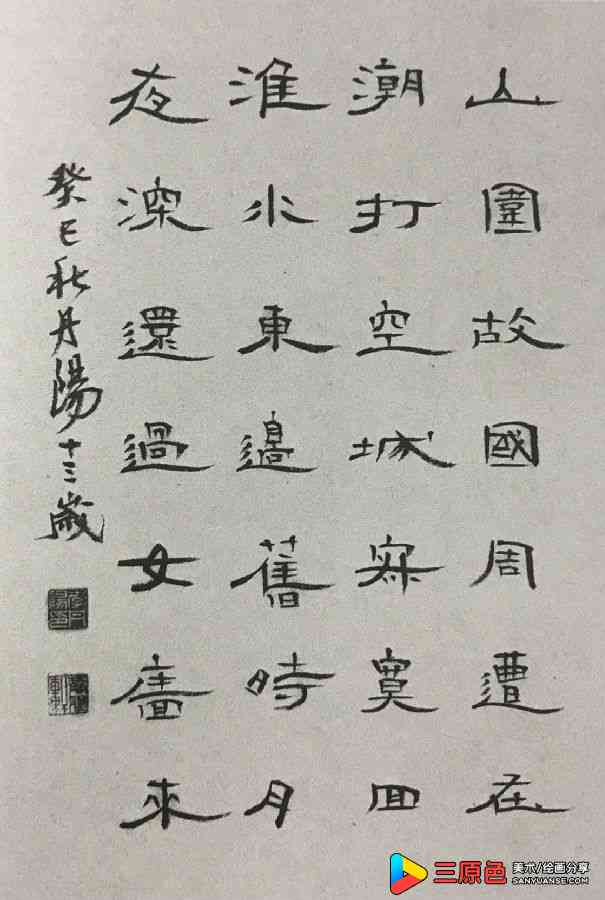 山圍故國周遭在
潮打空城寂寞回
淮水東邊舊時月
夜深還過女廧來
癸巳秋丹陽十三歲
三原色
美术/绘画分享
SANYUANSE.COM